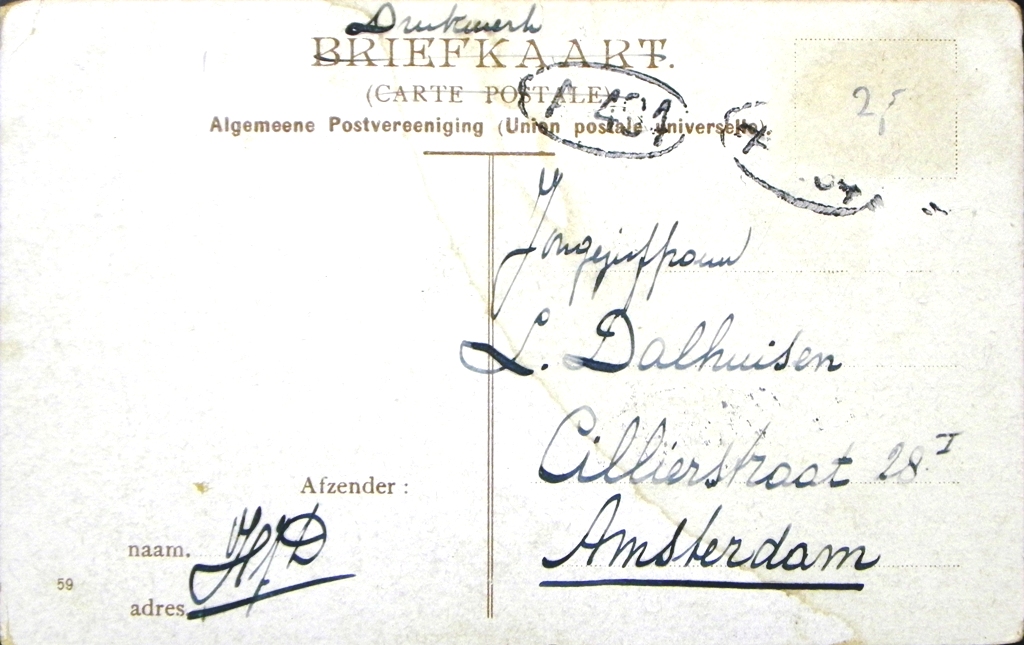 Drukwerk
BRIEFKAART.
(CARTE POSTALE)
Algemeene Postvereeniging (Union postale universelle)
2,5
Jongejuffrouw
L. Dalhuisen
Cillierstraat 28 I
Amsterdam
Afzender :
naam.
HJD
adres
59